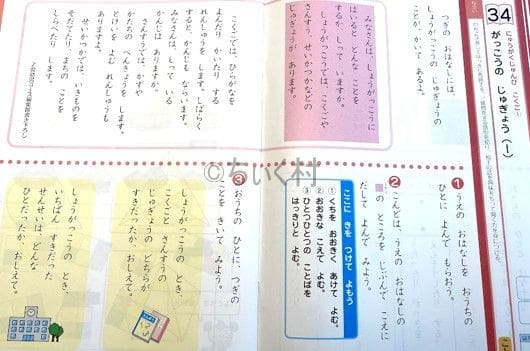 34
にゅうがくじゅんび こくご①
がっこうの じゅぎょう（1）
つぎの おはなしには、
しょうがっこうの じゅぎょうの
ことが かいて あるよ。
みなさんは、しょうがっこうに
はいると どんな ことを
するか、しって いますか。
しょうがっこうでは、こくごや
さんすう、せいかつかなどの
じゅぎょうが あります。
こくごでは ひらがなを
よんだり かいたり する
れんしゅうを します。しばらく
すると、かんじも ならいます。
みなさんは、しって いる
さんすうでは、かずや
かたちの べんきょうを します。
とけいを よむ れんしゅうも
ありますよ。
せいかつかでは、いきものを
そだてたり、まちの ことを
しらべたり します。
❶ うえの おはなしを おうちの
ひとに よんで もらおう。
❷ こんどは、うえの おはなしの
の ところを じぶんで こえに
だして よんで みよう。
ここに きを つけて よもう
① くちを おおきく あけて よむ。
② おおきな こえで よむ。
③ ひとつひとつの ことばを
はっきりと よむ。
❸ おうちの ひとに、つぎの
ことを きいて みよう。
しょうがっこうの とき、
こくごと さんすうの
じゅぎょうの どちらが
すきだったか、おしえて。
しょうがっこうの とき、
いちばん すきだった
せんせいは どんな
ひとだったか、おしえて。
©ちいく村